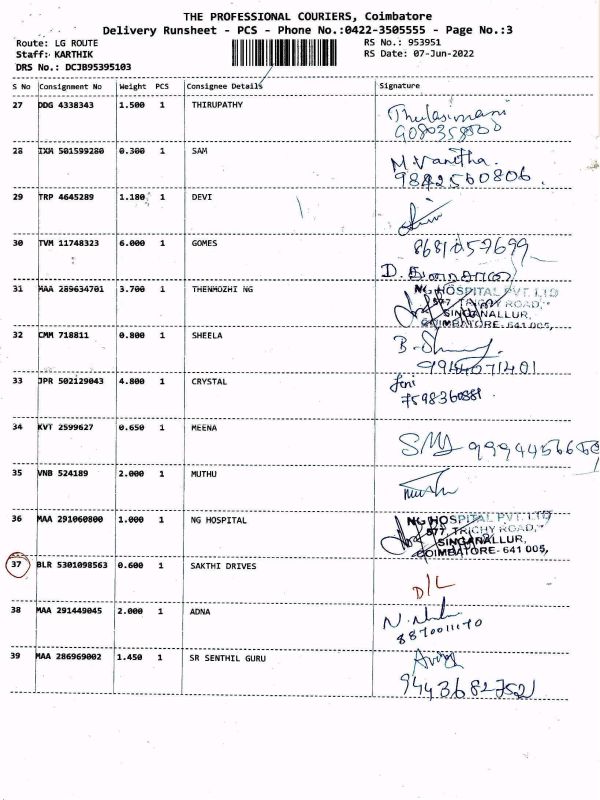 THE PROFESSIONAL COURIERS, Coimbatore
Delivery Runsheet - PCS - Phone No.:0422-3505555 - Page No.:3
Route: LG ROUTE
Staff: KARTHIK
DRS No.: DCJB95395103
RS No.: 953951
RS Date: 07-Jun-2022
S No Consignment No Weight PCS Consignee Details Signature
27 DDG 4338343 1.500 1 THIRUPATHY
Thulasimani
28 IXM 501599280 0.300 1 SAM
M. Vanitha.
9842560806.
29 TRP 4645289 1.180 1 DEVI
30 TVM 11748323 6.000 1 GOMES
8681057699
D.
31 MAA 289634701 3.700 1 THENMOZHI NG
NG HOSPITAL PVT. LTD
577, TRICHY ROAD,
SINGANALLUR,
COIMBATORE-641 005,
32 CMM 718811 0.800 1 SHEELA
B.
9944071401
33 JPR 502129043 4.800 1 CRYSTAL
Jeni
7598360881
34 KVT 2599627 0.650 1 MEENA
35 VNB 524189 2.000 1 MUTHU
Muthu
36 MAA 291060800 1.000 1 NG HOSPITAL
NG HOSPITAL PVT. LTD
577, TRICHY ROAD,
SINGANALLUR,
COIMBATORE-641 005,
37 BLR 5301098563 0.600 1 SAKTHI DRIVES
D/L
38 MAA 291449045 2.000 1 ADNA
N.
8870011170
39 MAA 286969002 1.450 1 SR SENTHIL GURU
9443682752